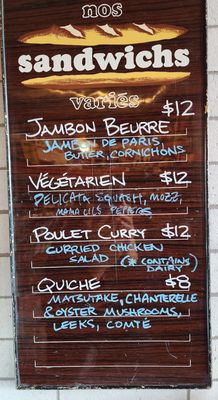 nos
sandwichs
variés
$12
JAMBON BEURRE
JAMBON DE PARIS,
BUTTER, CORNICHONS
VÉGÉTARIEN $12
DELICATA SQUASH, MOZZ,
MAMA LIL'S PEPPERS
POULET CURRY $12
CURRIED CHICKEN
SALAD (* CONTAINS
DAIRY)
QUICHE $8
MATSUTAKE, CHANTERELLE
& OYSTER MUSHROOMS,
LEEKS, COMTÉ